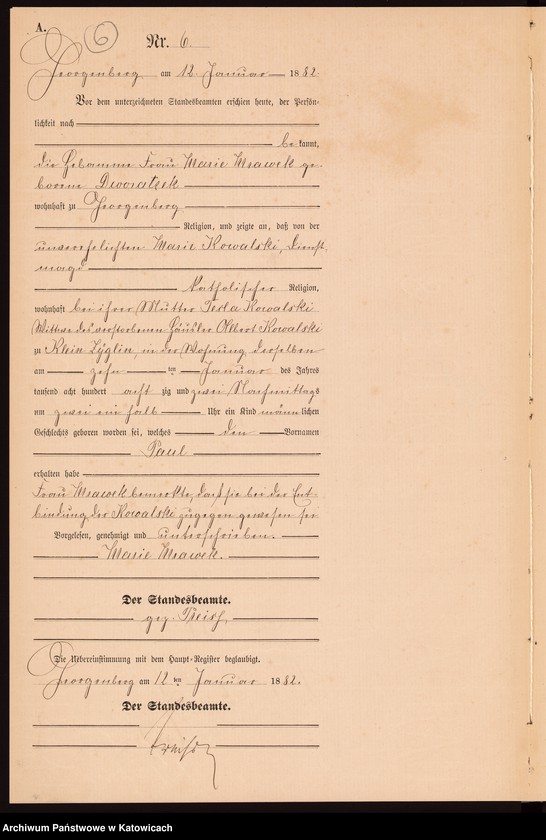 A.
6
Nr. 6.
Georgenberg am 12. Januar 1882.
Vor dem unterzeichneten Standesbeamten erschien heute, der Persön-
lichkeit nach
bekannt,
die Hebamme Frau Marie Mrawek ge-
borene Dworatzek
wohnhaft zu Georgenberg
Religion, und zeigte an, daß von der
unverehelichten Marie Kowalski, Dienst-
magd
katholischer Religion,
wohnhaft bei ihrer Mutter Tecla Kowalski
Wittwe des verstorbenen Häusler Albert Kowalski
zu Klein Zyglin, in der Wohnung derselben
am zehn ten Januar des Jahres
tausend acht hundert acht zig und zwei Nachmittags
um zwei ein halb Uhr ein Kind männlichen
Geschlechts geboren worden sei, welches den Vornamen
Paul
erhalten habe
Frau Mrawek bemerkte, daß sie bei der Ent-
bindung der Kowalski zugegen gewesen sei
Vorgelesen, genehmigt und unterschrieben.
Marie Mrawek.
Der Standesbeamte.
gez.
Die Uebereinstimmung mit dem Haupt-Register beglaubigt.
Georgenberg am 12 ten Januar 1882.
Der Standesbeamte.
Archiwum Państwowe w Katowicach